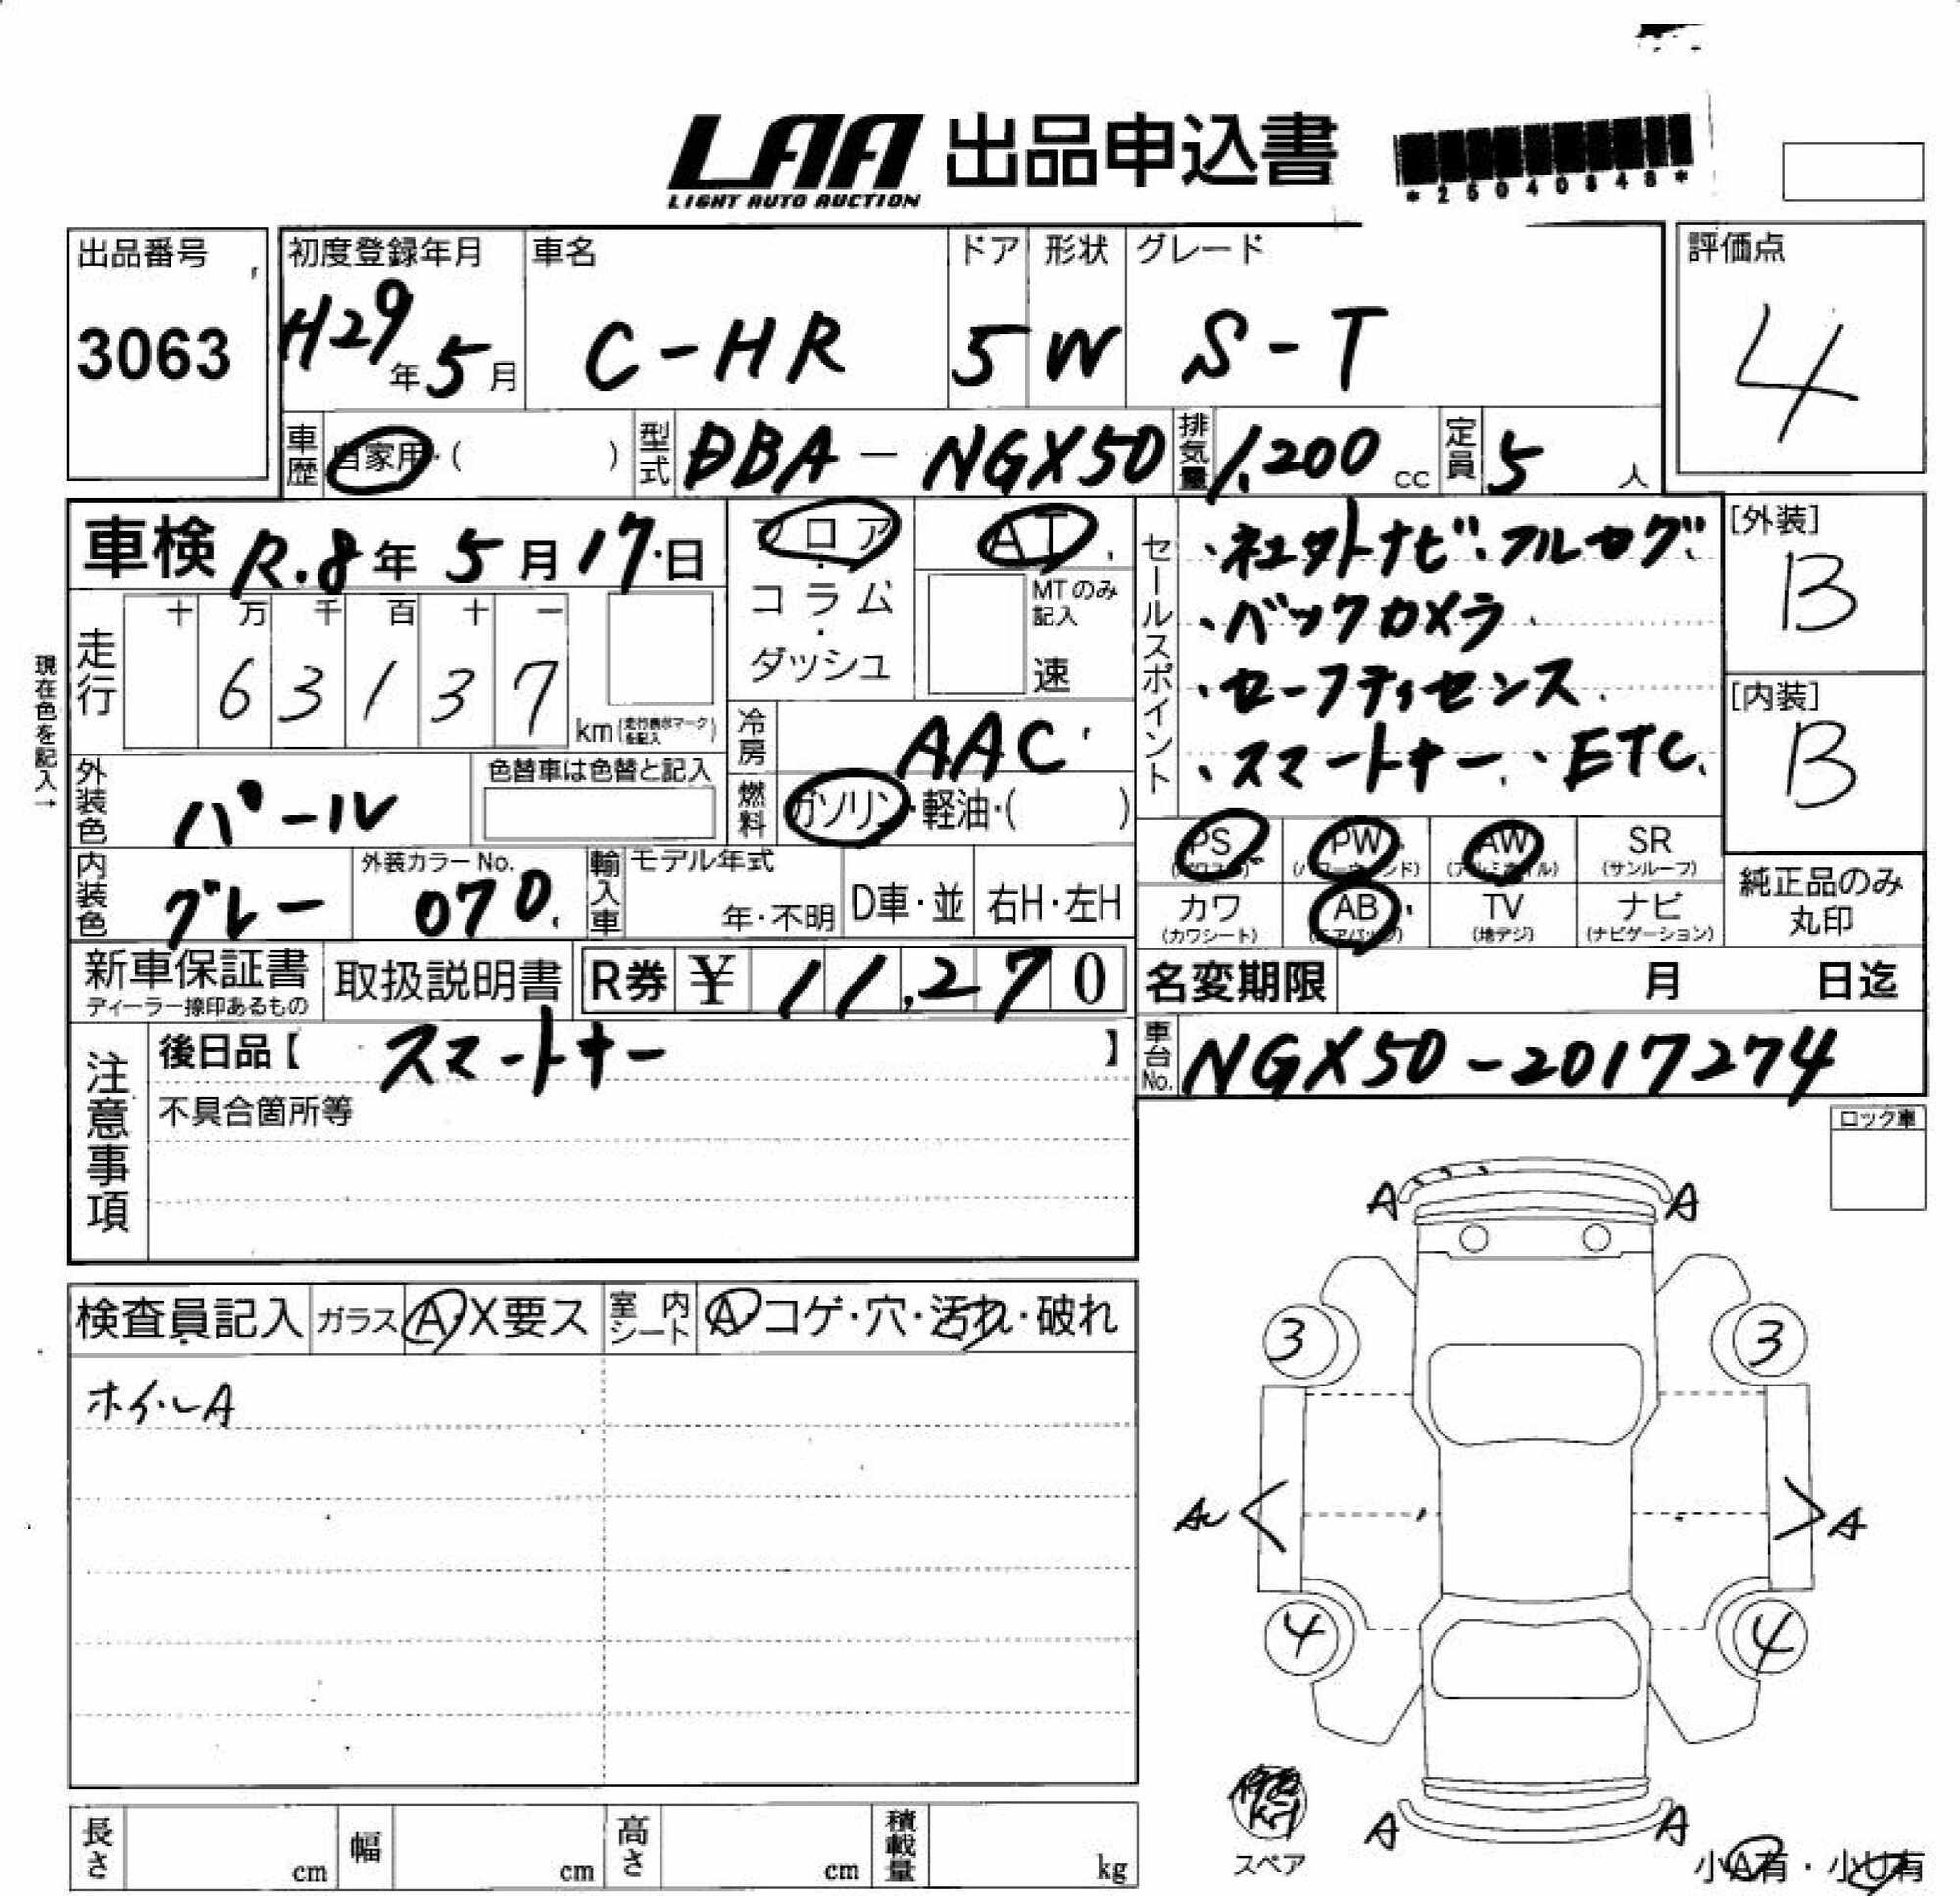 LAA 出品申込書
LIGHT AUTO AUCTION
*25040846*
出品番号
3063
初度登録年月
H29年5月
車名
C-HR
ドア
5
形状
W
グレード
S-T
評価点
4
車歴
自家用・( )
型式
DBA-NGX50
排気量
1,200 cc
定員
5 人
車検 R.8年5月17日
フロア・コラム・ダッシュ
AT
MTのみ記入
速
セールスポイント
・ネエクトナビ・フルセグ
・バックカメラ
・セーフティセンス
・スマートキー・ETC
[外装]
B
[内装]
B
現在色を記入→
走行
十 万 千 百 十 一
6 3 1 3 7
km(走行表示マークを記入)
冷房
AAC
燃料
ガソリン・軽油・( )
外装色
パール
色替車は色替と記入
内装色
グレー
外装カラーNo.
070
輸入車
モデル年式
年・不明
D車・並
右H・左H
PS
(パワステ)
PW
(パワーウィンド)
AW
(アルミホイル)
SR
(サンルーフ)
カワ
(カワシート)
AB
(エアバッグ)
TV
(地デジ)
ナビ
(ナビゲーション)
純正品のみ
丸印
新車保証書
ディーラー捺印あるもの
取扱説明書
R券 ¥ 11,270
名変期限 月 日迄
注意事項
後日品【 スマートキー 】
不具合箇所等
車台No.
NGX50-2017274
ロック車
検査員記入
ガラス
A・X要ス
室内シート
A・コゲ・穴・汚れ・破れ
ホイルA
A
A
3
3
A
4
4
A
A
スペア
小A有・小U有
長さ cm
幅 cm
高さ cm
積載量 kg